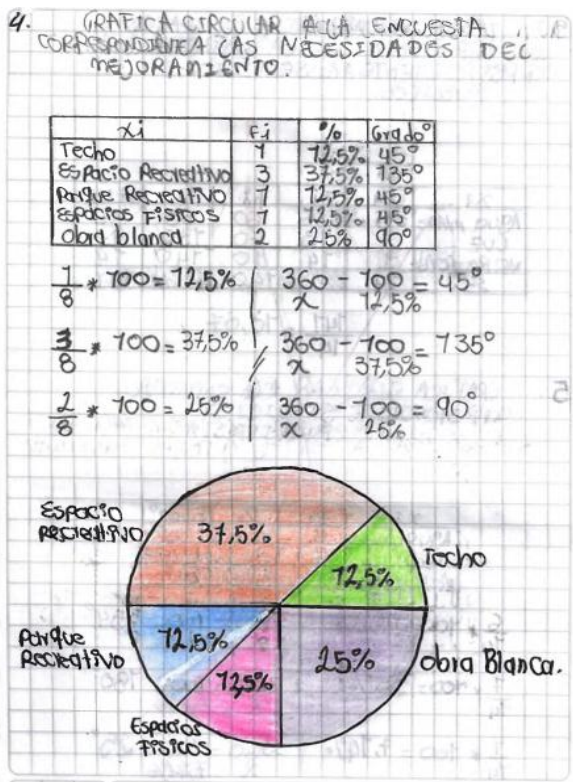 4. GRAFICA CIRCULAR A LA ENCUESTA
CORRESPONDIENTE A LAS NECESIDADES DEL
MEJORAMIENTO.
xi fi % Grado°
Techo 1 12,5% 45°
Espacio Recreativo 3 37,5% 135°
Parque Recreativo 1 12,5% 45°
Espacios Fisicos 1 12,5% 45°
Obra blanca 2 25% 90°
1/8 * 100 = 12,5% 360 - 100 = 45°
x 12,5%
3/8 * 100 = 37,5% 360 - 100 = 135°
x 37,5%
2/8 * 100 = 25% 360 - 100 = 90°
x 25%
Espacio
recreativo
37,5%
Techo
12,5%
Parque
Recreativo
12,5%
25%
obra Blanca.
12,5%
Espacios
Fisicos